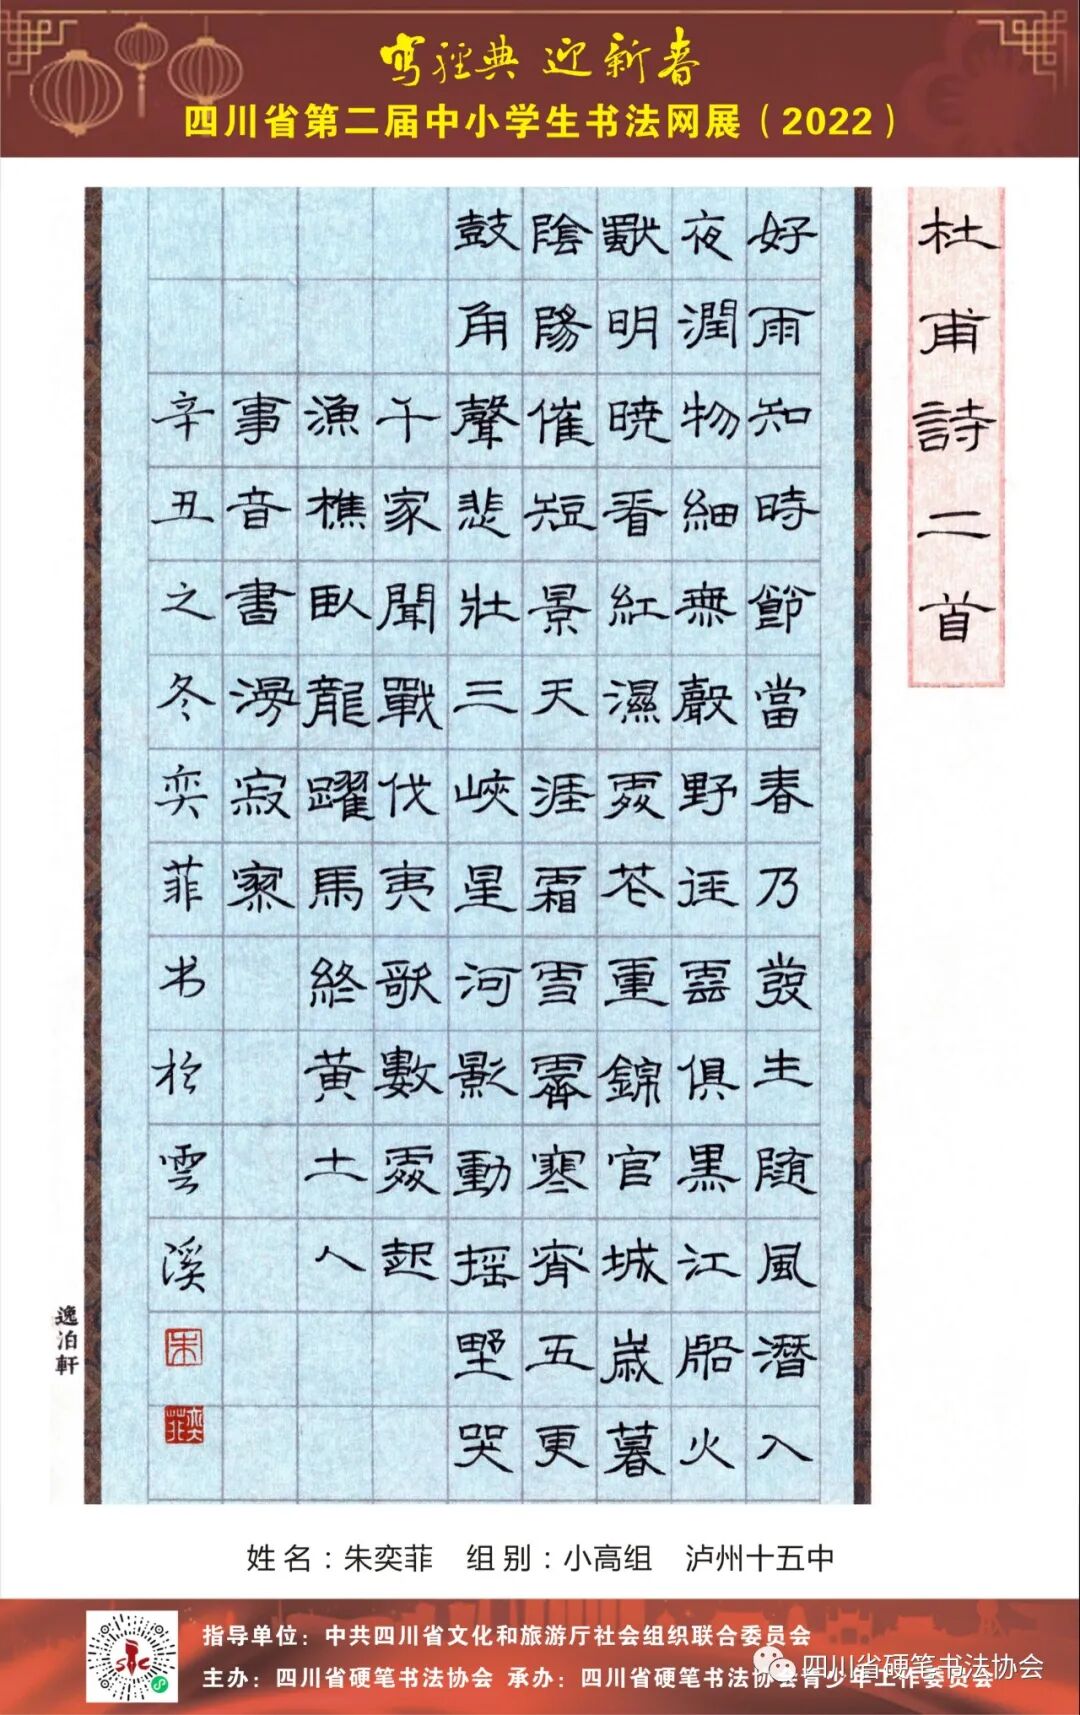 寫經典 迎新春
四川省第二届中小学生书法网展（2022）
杜甫詩二首
好雨知時節當春乃發生随風潛入
夜潤物細無聲野逕雲俱黑江船火
獨明曉看紅濕處花重錦官城歲暮
陰陽催短景天涯霜雪霽寒宵五更
鼓角聲悲壯三峽星河影動摇野哭
千家聞戰伐夷歌數處起
漁樵臥龍躍馬終黄土人
事音書漫寂寥
辛丑之冬奕菲书於雲溪
朱
奕菲
逸泊軒
姓名：朱奕菲 组别：小高组 泸州十五中
指导单位：中共四川省文化和旅游厅社会组织联合委员会
主办：四川省硬笔书法协会 承办：四川省硬笔书法协会青少年工作委员会
四川省硬笔书法协会